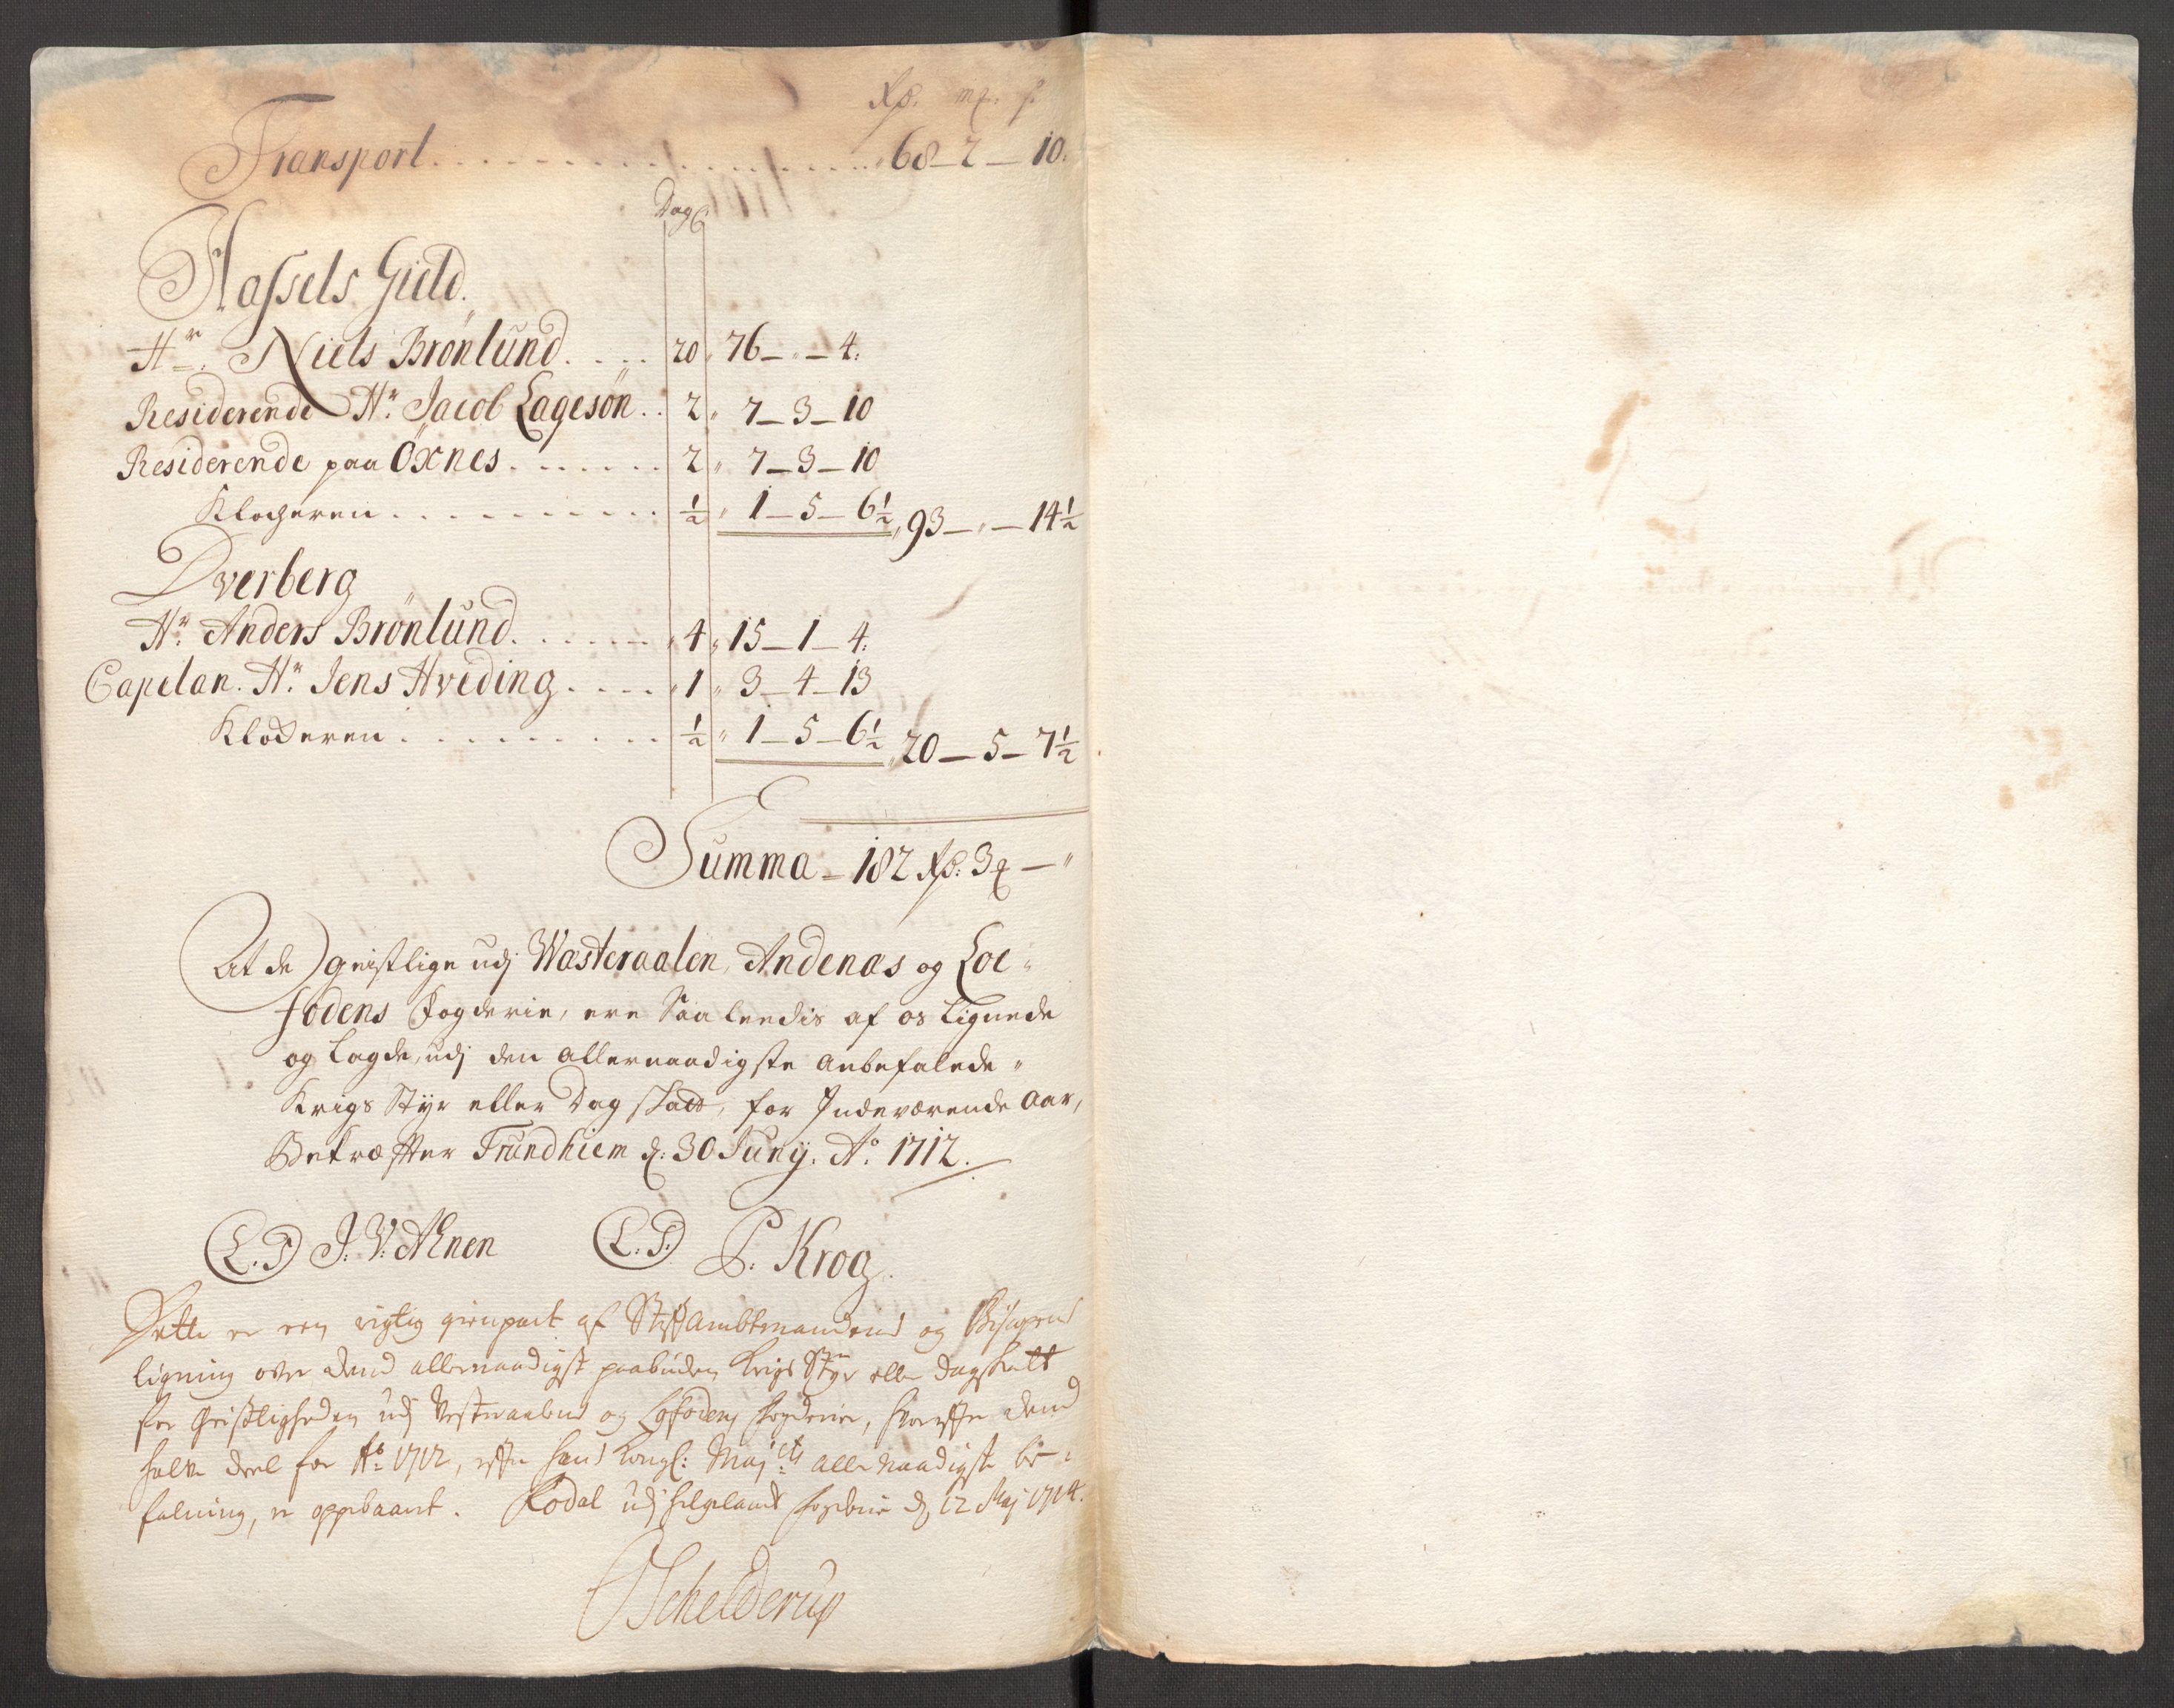 Rd. mk. s.
Transport . . . . . . . . 68 – 2 – 10.
Dage
Hassels Gield.
Hr. Niels Brönlund . . . . 20 „ 76 – „ – 4.
Residerende Hr. Jacob Lagesön . . 2 „ 7 – 3 – 10
Residerende paa Öxnes . . . . . . 2 „ 7 – 3 – 10
Klocheren . . . . . . . . ½ „ 1 – 5 – 6½ „ 93 – „ – 14½
Dverberg
Hr. Anders Brönlund . . . . . „ 4 „ 15 – 1 – 4.
Capelan. Hr. Jens Hveding . . . . „ 1 „ 3 – 4 – 13
Klockeren . . . . . . . . ½ „ 1 – 5 – 6½ „ 20 – 5 – 7½
Summa – 182 Rd. 3 mk – „
At de geistlige udj Wæsteraalen, Andenæs og Loe-
fodens Fogderie, ere Saaleedis af os Lignede
og Lagde, udj den allernaadigste anbefalede
Krigs Styr eller Dag skatt, for Indeværende Aar,
Bekræffter Trundhiem d: 30 Juny. Ao. 1712.
L.S J: V: Ahnen L.S. P. Krog.
Dette er een rigtig gienpart af Stiftambtmandens og Bispens
ligning over dend allernaadigst paabudne Krigs Styr eller Dagskatt
for Geistligheden udj Vesteraalens og Lofodens fogderier, hvoreffter dend
halve deel for Ao 1712, effter hans Kongl: Maj:ts allernaadigste be-
falning, er oppebaaret. Rodal udj Helgelands fogderie d 12 Maj 1714.
OSchelderup